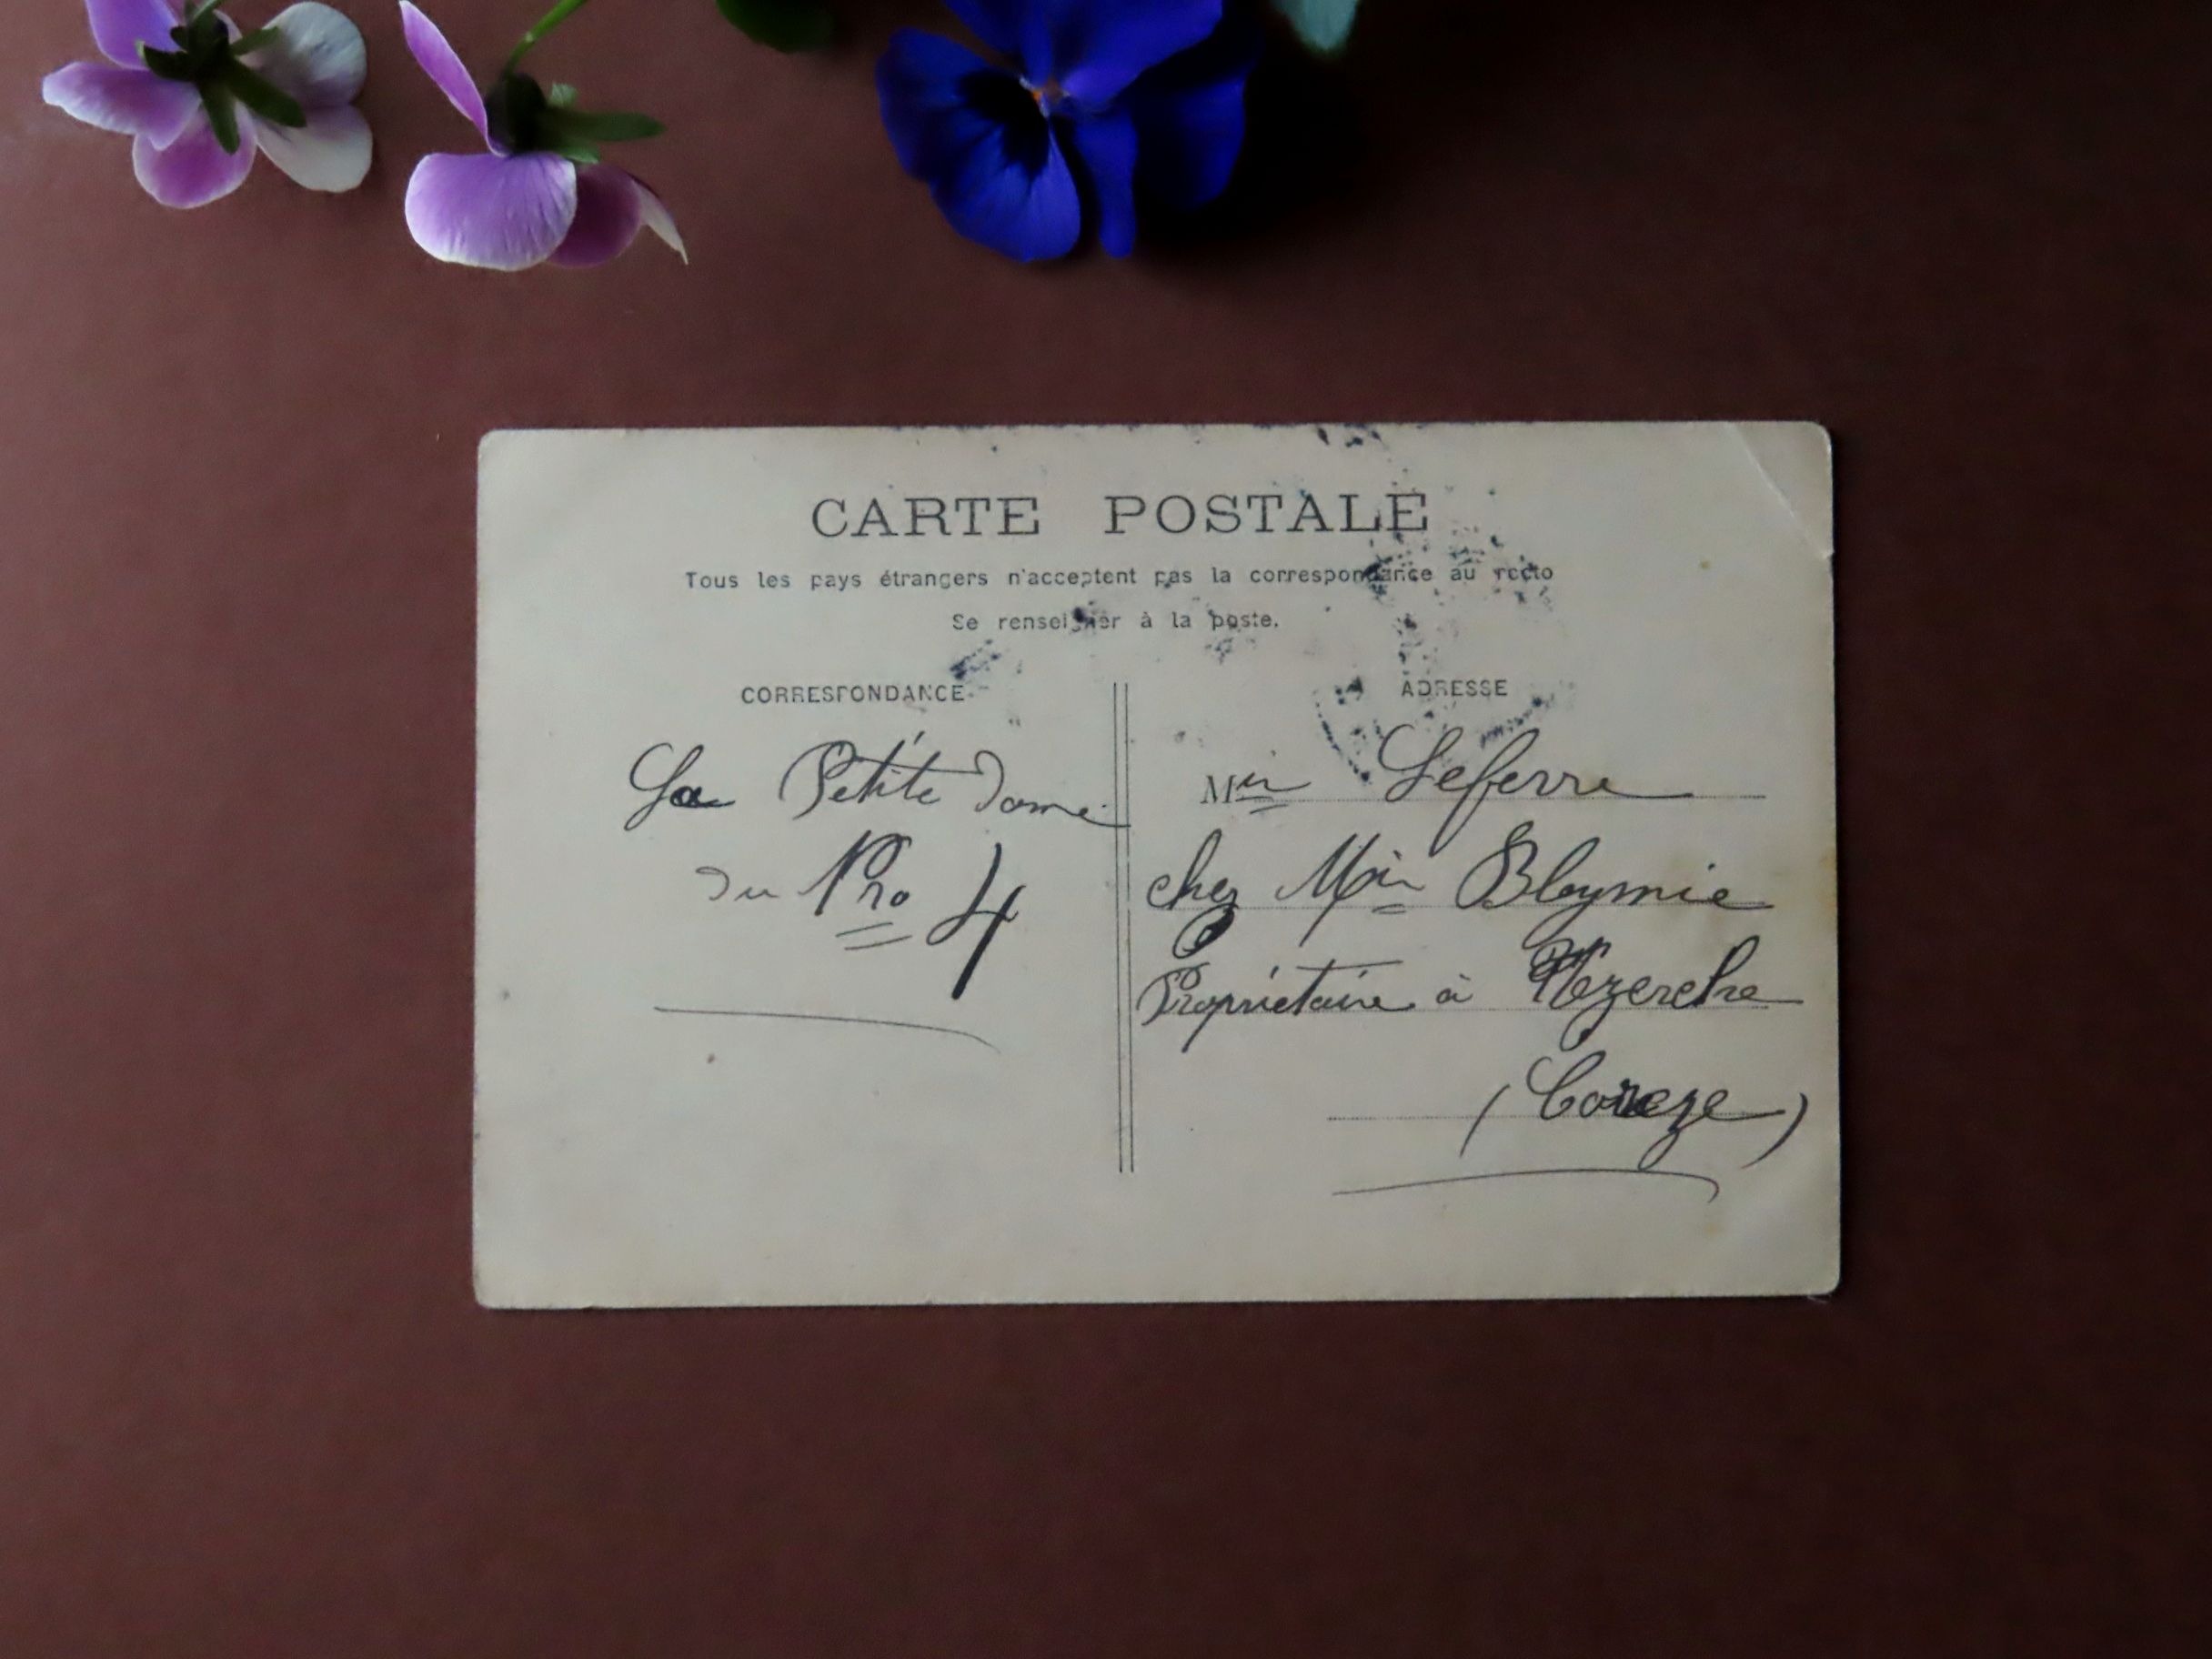 CARTE POSTALE
Tous les pays étrangers n'acceptent pas la correspondance au recto
Se renseigner à la poste.
CORRESPONDANCE
ADRESSE
La Petite Dame
du Nro 4
Mr Leferre
chez Mr Bleymie
Propriétaire à Uzerche
(Coreze)